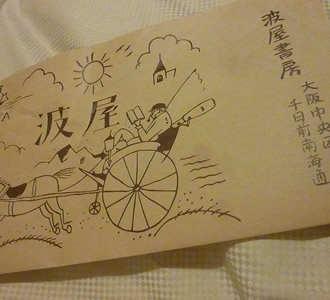 波屋
波屋書房
大阪中央区
千日前南海通